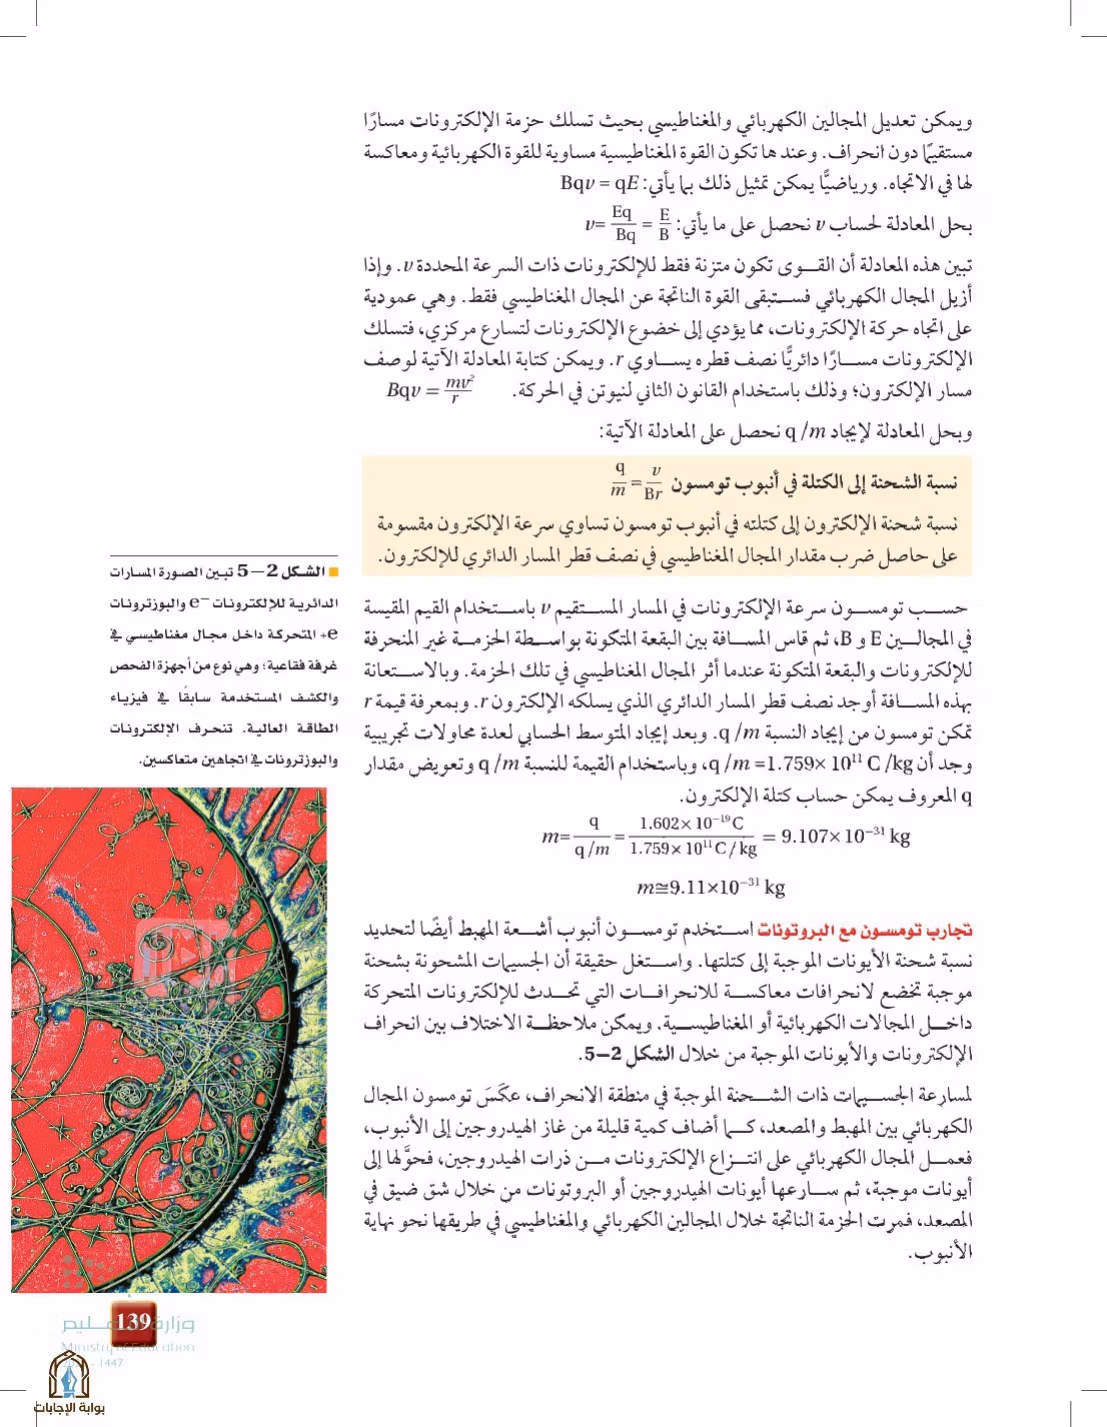 ويمكن تعديل المجالين الكهربائي والمغناطيسي بحيث تسلك حزمة الإلكترونات مسارًا
مستقيمًا دون انحراف. وعندها تكون القوة المغناطيسية مساوية للقوة الكهربائية ومعاكسة
لها في الاتجاه. ورياضيًّا يمكن تمثيل ذلك بما يأتي: Bqv = qE
بحل المعادلة لحساب v نحصل على ما يأتي: v= Eq/Bq = E/B
تبين هذه المعادلة أن القـــوى تكون متزنة فقط للإلكترونات ذات السرعة المحددة v. وإذا
أزيل المجال الكهربائي فســـتبقى القوة الناتجة عن المجال المغناطيسي فقط. وهي عمودية
على اتجاه حركة الإلكترونات، مما يؤدي إلى خضوع الإلكترونات لتسارع مركزي، فتسلك
الإلكترونات مســـارًا دائريًّا نصف قطره يســـاوي r. ويمكن كتابة المعادلة الآتية لوصف
مسار الإلكترون؛ وذلك باستخدام القانون الثاني لنيوتن في الحركة. Bqv = mv²/r
وبحل المعادلة لإيجاد q/m نحصل على المعادلة الآتية:
نسبة الشحنة إلى الكتلة في أنبوب تومسون q/m = v/Br
نسبة شحنة الإلكترون إلى كتلته في أنبوب تومسون تساوي سرعة الإلكترون مقسومة
على حاصل ضرب مقدار المجال المغناطيسي في نصف قطر المسار الدائري للإلكترون.
حســـب تومســـون سرعة الإلكترونات في المسار المســـتقيم v باســـتخدام القيم المقيسة
في المجالـــين E و B، ثم قاس المســـافة بين البقعة المتكونة بواســـطة الحزمـــة غير المنحرفة
للإلكترونات والبقعة المتكونة عندما أثر المجال المغناطيسي في تلك الحزمة. وبالاســـتعانة
بهذه المســـافة أوجد نصف قطر المسار الدائري الذي يسلكه الإلكترون r. وبمعرفة قيمة r
تمكن تومسون من إيجاد النسبة q/m. وبعد إيجاد المتوسط الحسابي لعدة محاولات تجريبية
وجد أن q/m =1.759× 10¹¹ C/kg، وباستخدام القيمة للنسبة q/m وتعويض مقدار
q المعروف يمكن حساب كتلة الإلكترون.
m= q/(q/m) = 1.602× 10⁻¹⁹C / 1.759× 10¹¹C/kg = 9.107× 10⁻³¹ kg
m≅9.11×10⁻³¹ kg
تجارب تومسون مع البروتونات اســـتخدم تومســـون أنبوب أشـــعة المهبط أيضًا لتحديد
نسبة شحنة الأيونات الموجبة إلى كتلتها. واســـتغل حقيقة أن الجسيمات المشحونة بشحنة
موجبة تخضع لانحرافات معاكســـة للانحرافـــات التي تحـــدث للإلكترونات المتحركة
داخـــل المجالات الكهربائية أو المغناطيســـية. ويمكن ملاحظـــة الاختلاف بين انحراف
الإلكترونات والأيونات الموجبة من خلال الشكل 2–5.
لمسارعة الجســـيمات ذات الشـــحنة الموجبة في منطقة الانحراف، عكَسَ تومسون المجال
الكهربائي بين المهبط والمصعد، كـــما أضاف كمية قليلة من غاز الهيدروجين إلى الأنبوب،
فعمـــل المجال الكهربائي على انتـــزاع الإلكترونات مـــن ذرات الهيدروجين، فحوَّلها إلى
أيونات موجبة، ثم ســـارعها أيونات الهيدروجين أو البروتونات من خلال شق ضيق في
المصعد، فمرت الحزمة الناتجة خلال المجالين الكهربائي والمغناطيسي في طريقها نحو نهاية
الأنبوب.
■ الشكل 2–5 تبين الصورة المسارات
الدائرية للإلكترونات e⁻ والبوزترونات
e+ المتحركة داخل مجال مغناطيسي في
غرفة فقاعية؛ وهي نوع من أجهزة الفحص
والكشف المستخدمة سابقًا في فيزياء
الطاقة العالية. تنحرف الإلكترونات
والبوزترونات في اتجاهين متعاكسين.
139
وزارة التعليم
Ministry of Education
- 1447
بوابة الإجابات